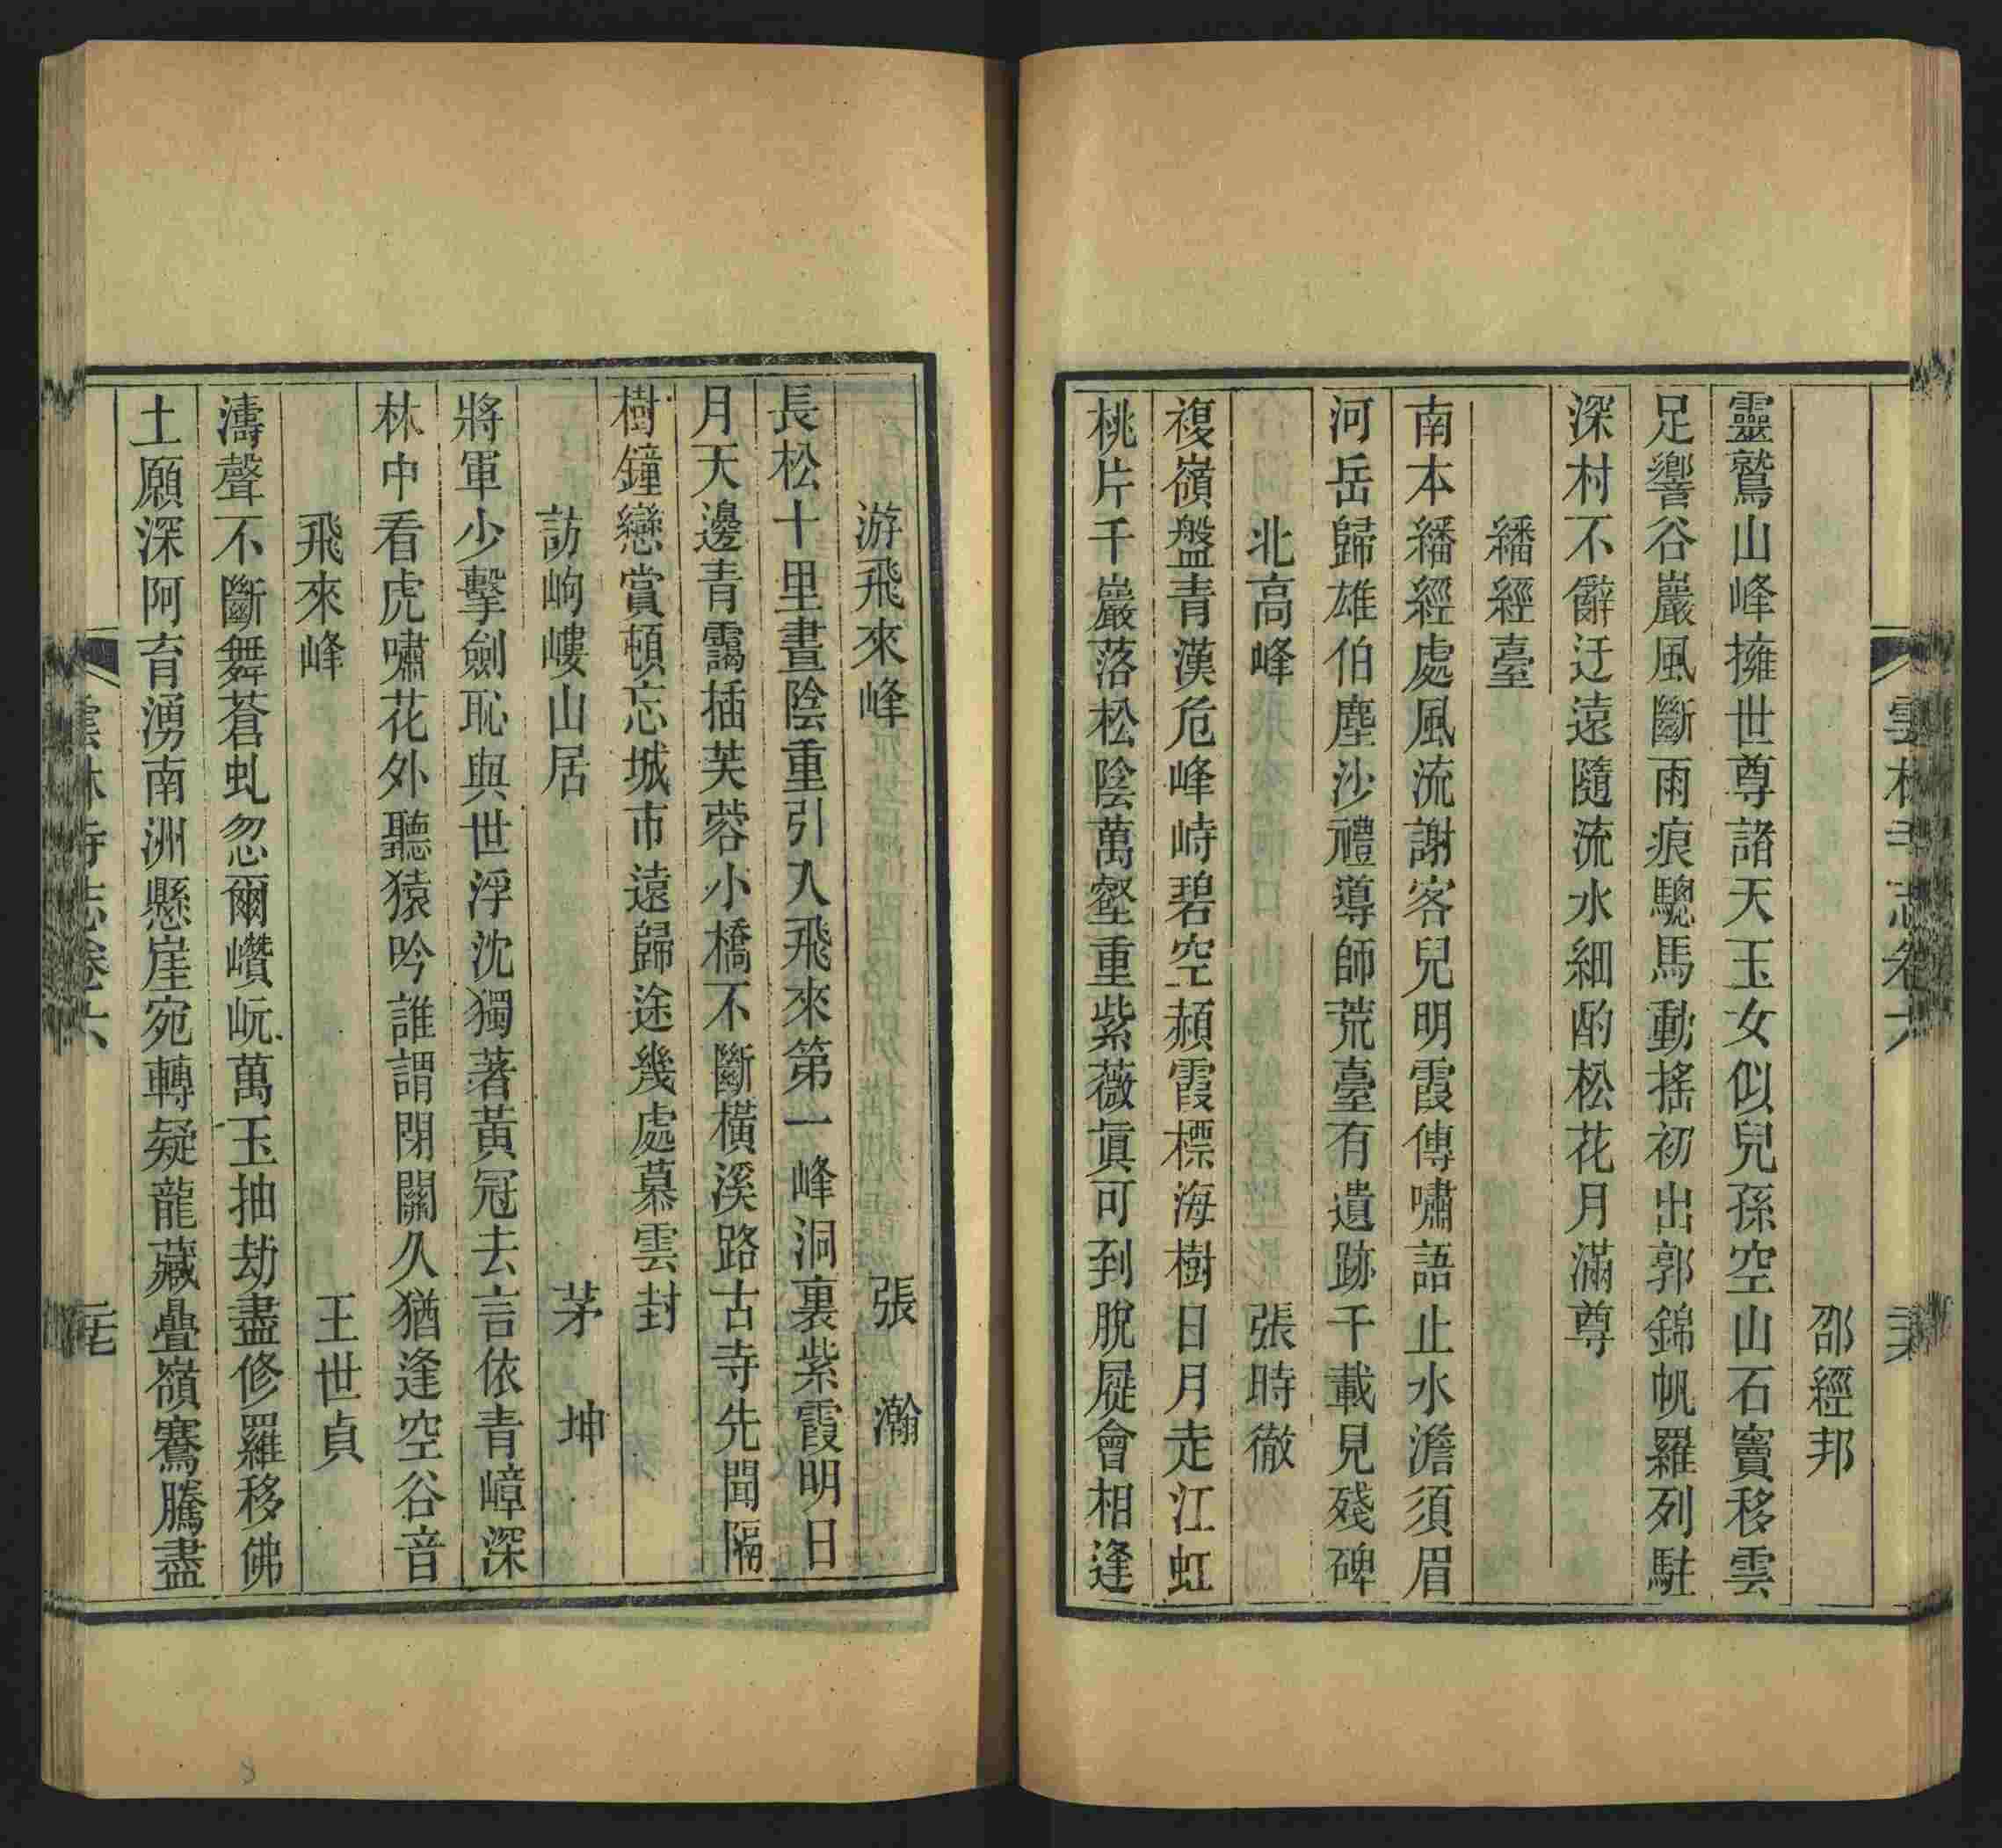 雲林寺志卷六
邵經邦
靈鷲山峰擁世尊諸天玉女似兒孫空山石竇移雲
足響谷巖風斷雨痕驄馬動搖初出郭錦帆羅列駐
深村不辭迂遠隨流水細酌松花月滿尊
繙經臺
南本繙經處風流謝客兒明霞傳嘯語止水澹須眉
河岳歸雄伯塵沙禮導師荒臺有遺跡千載見殘碑
北高峰 張時徹
複嶺盤青漢危峰峙碧空赬霞標海樹日月走江虹
桃片千巖落松陰萬壑重紫薇眞可到脫屣會相逢
游飛來峰 張瀚
長松十里晝陰重引入飛來第一峰洞裏紫霞明日
月天邊青靄插芙蓉小橋不斷橫溪路古寺先聞隔
樹鐘戀賞頓忘城市遠歸途幾處慕雲封
訪岣嶁山居 茅坤
將軍少擊劍恥與世浮沈獨著黃冠去言依青嶂深
林中看虎嘯花外聽猿吟誰謂閉關久猶逢空谷音
飛來峰 王世貞
濤聲不斷舞蒼虬忽爾巑岏萬玉抽劫盡修羅移佛
土願深阿育湧南洲懸崖宛轉疑龍藏疊嶺騫騰盡
雲林寺志卷六